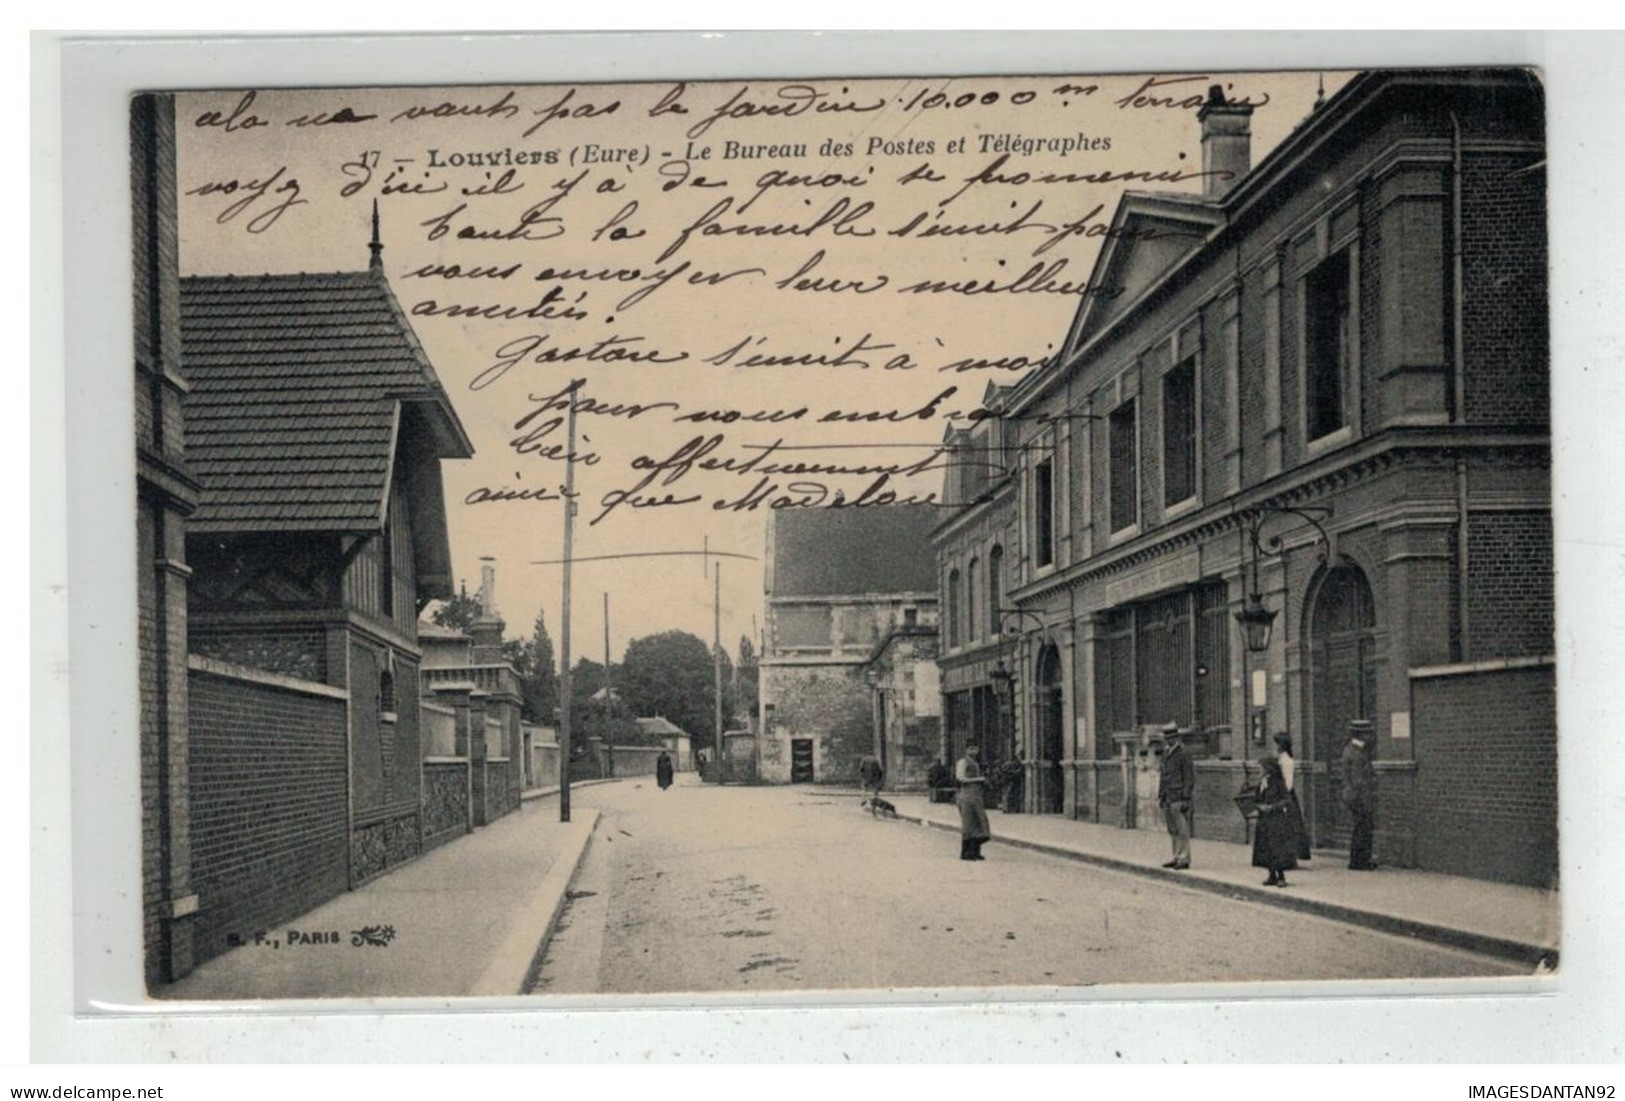 cela ne vaut pas le jardin 10.000 m terrain
17 — Louviers (Eure) - Le Bureau des Postes et Télégraphes
voyez d'ici il y à de quoi se promener
toute la famille s'unit pour
vous envoyer leur meilleurs
amitiés.
Gaston s'unit à moi
pour vous embrasser
bien affectueusement
ainsi que Madeleine
B. F., PARIS
delcampe.net
IMAGESDANTAN92